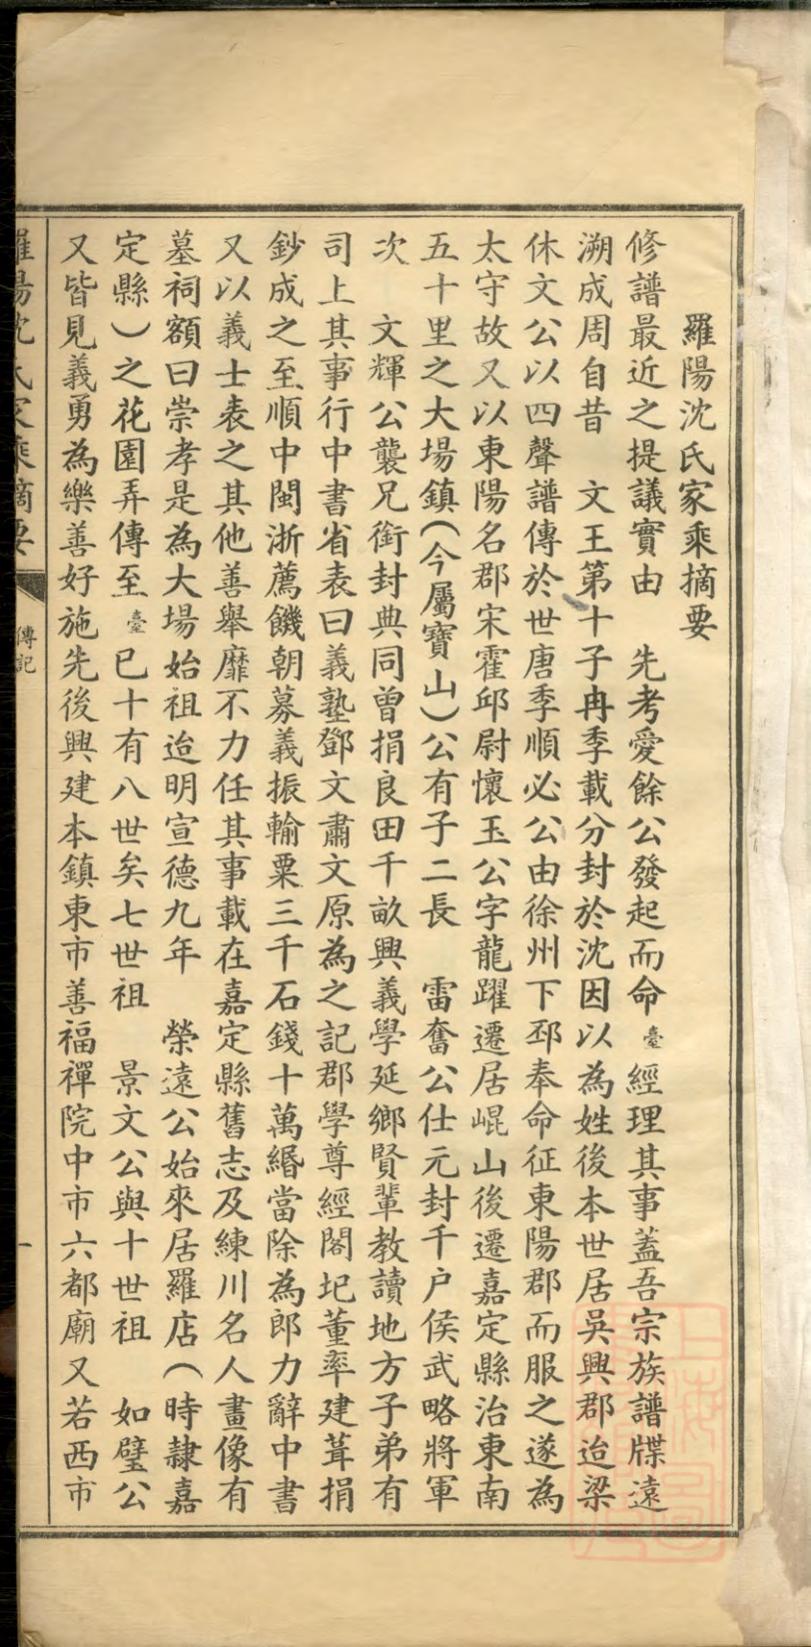 羅陽沈氏家乘摘要
修譜最近之提議實由　先考愛餘公發起而命臺經理其事蓋吾宗族譜牒遠
溯成周自昔　文王第十子冉季載分封於沈因以為姓後本世居吳興郡迨梁
休文公以四聲譜傳於世唐季順必公由徐州下邳奉命征東陽郡而服之遂為
太守故又以東陽名郡宋霍邱尉懷玉公字龍躍遷居崐山後遷嘉定縣治東南
五十里之大場鎮（今屬寶山）公有子二長　雷奮公仕元封千户侯武略將軍
次　文輝公襲兄銜封典同曾捐良田千畝興義學延鄉賢輩教讀地方子弟有
司上其事行中書省表曰義塾鄧文肅文原為之記郡學尊經閣圮董率建葺捐
鈔成之至順中閩浙薦饑朝募義振輸粟三千石錢十萬緡當除為郎力辭中書
又以義士表之其他善舉靡不力任其事載在嘉定縣舊志及練川名人畫像有
墓祠額曰崇孝是為大場始祖迨明宣德九年　榮遠公始來居羅店（時隸嘉
定縣）之花園弄傳至臺已十有八世矣七世祖　景文公與十世祖　如璧公
又皆見義勇為樂善好施先後興建本鎮東市善福禪院中市六都廟又若西市
羅陽沈氏家乘摘要
傳記
一